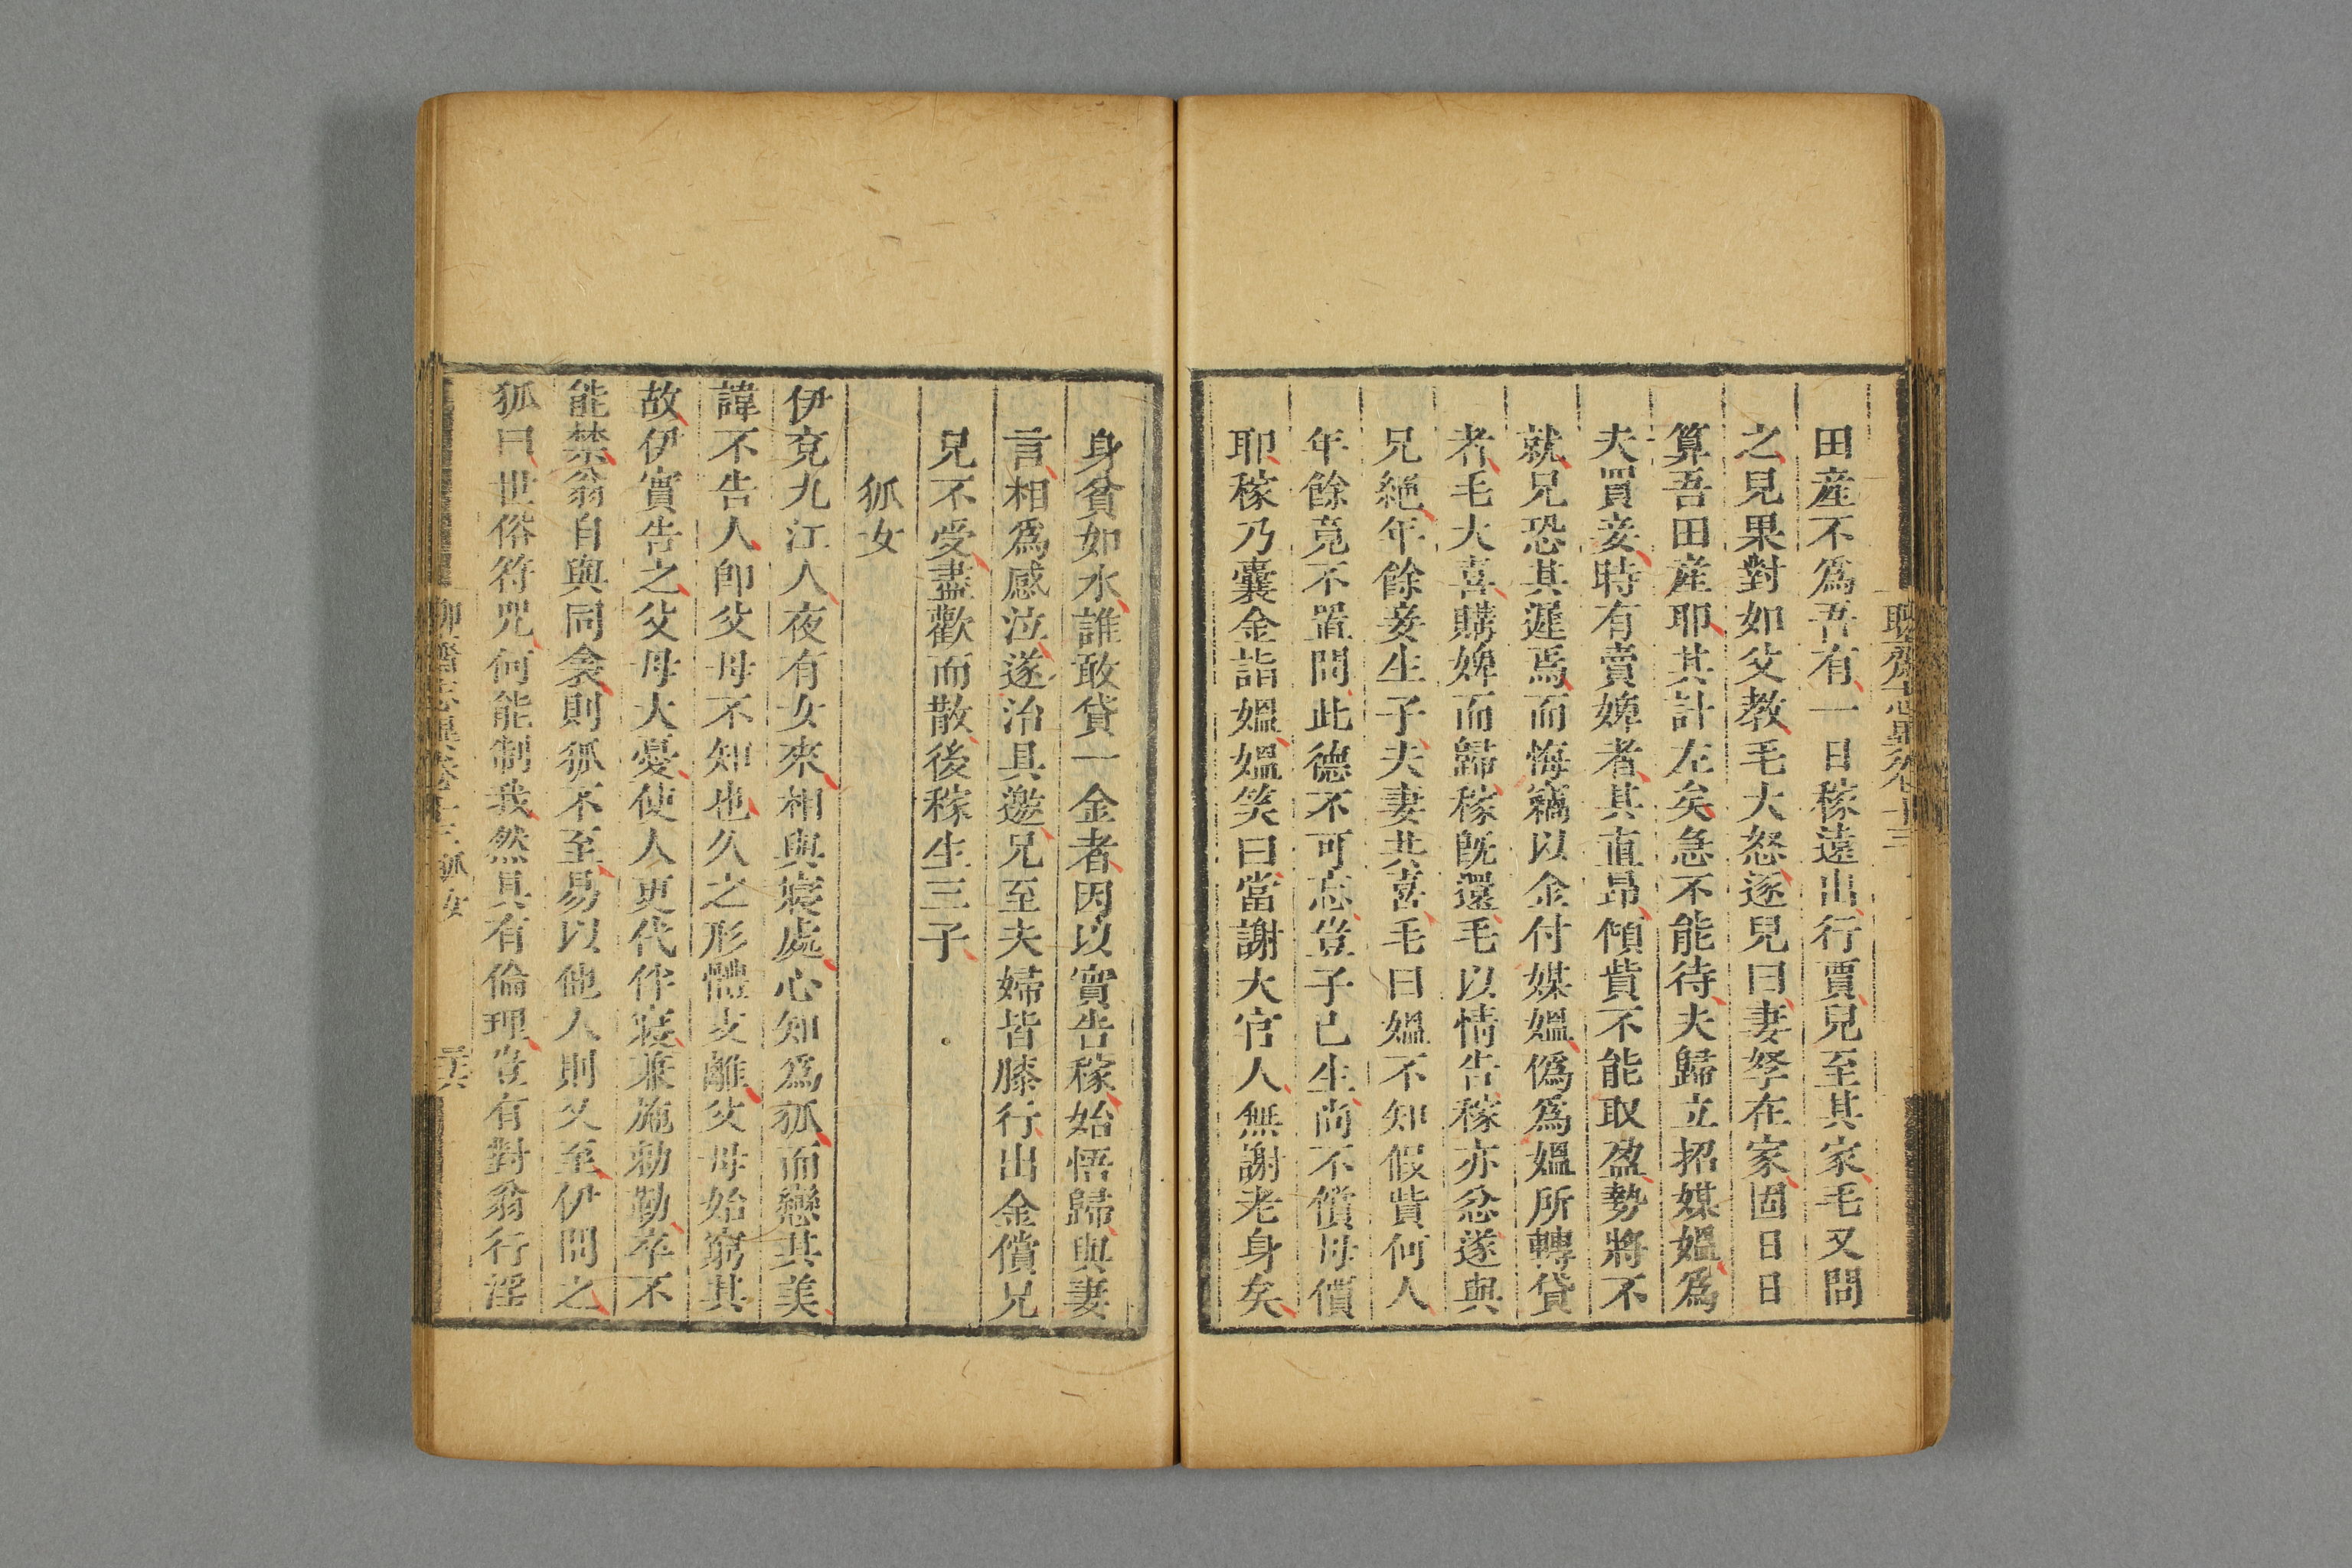 聊齋志異卷十三
田産不爲吾有一日稼遠出行賈兒至其家毛又問
之兒果對如父教毛大怒逐兒曰妻孥在家固日日
算吾田産耶其計左矣急不能待夫歸立招媒媼爲
夫買妾時有賣婢者其直昂傾貲不能取盈勢將不
就兄恐其遲焉而悔竊以金付媒媼僞爲媼所轉貸
者毛大喜購婢而歸稼旣還毛以情告稼亦忿遂與
兄絶年餘妾生子夫妻共喜毛曰媼不知假貲何人
年餘竟不置問此德不可忘豈子已生尚不償母價
耶稼乃囊金詣媼媼笑曰當謝大官人無謝老身矣
身貧如水誰敢貸一金者因以實告稼始悟歸與妻
言相爲感泣遂治具邀兄至夫婦皆膝行出金償兄
兄不受盡歡而散後稼生三子
狐女
伊兗九江人夜有女來相與寢處心知爲狐而戀其美
諱不告人卽父母不知也久之形體支離父母始窮其
故伊實告之父母大憂使人更代伴寢兼施勅勒卒不
能禁翁自與同衾則狐不至易以他人則又至伊問之
狐曰世俗符咒何能制我然具有倫理豈有對翁行淫
聊齋志異卷十三 狐女